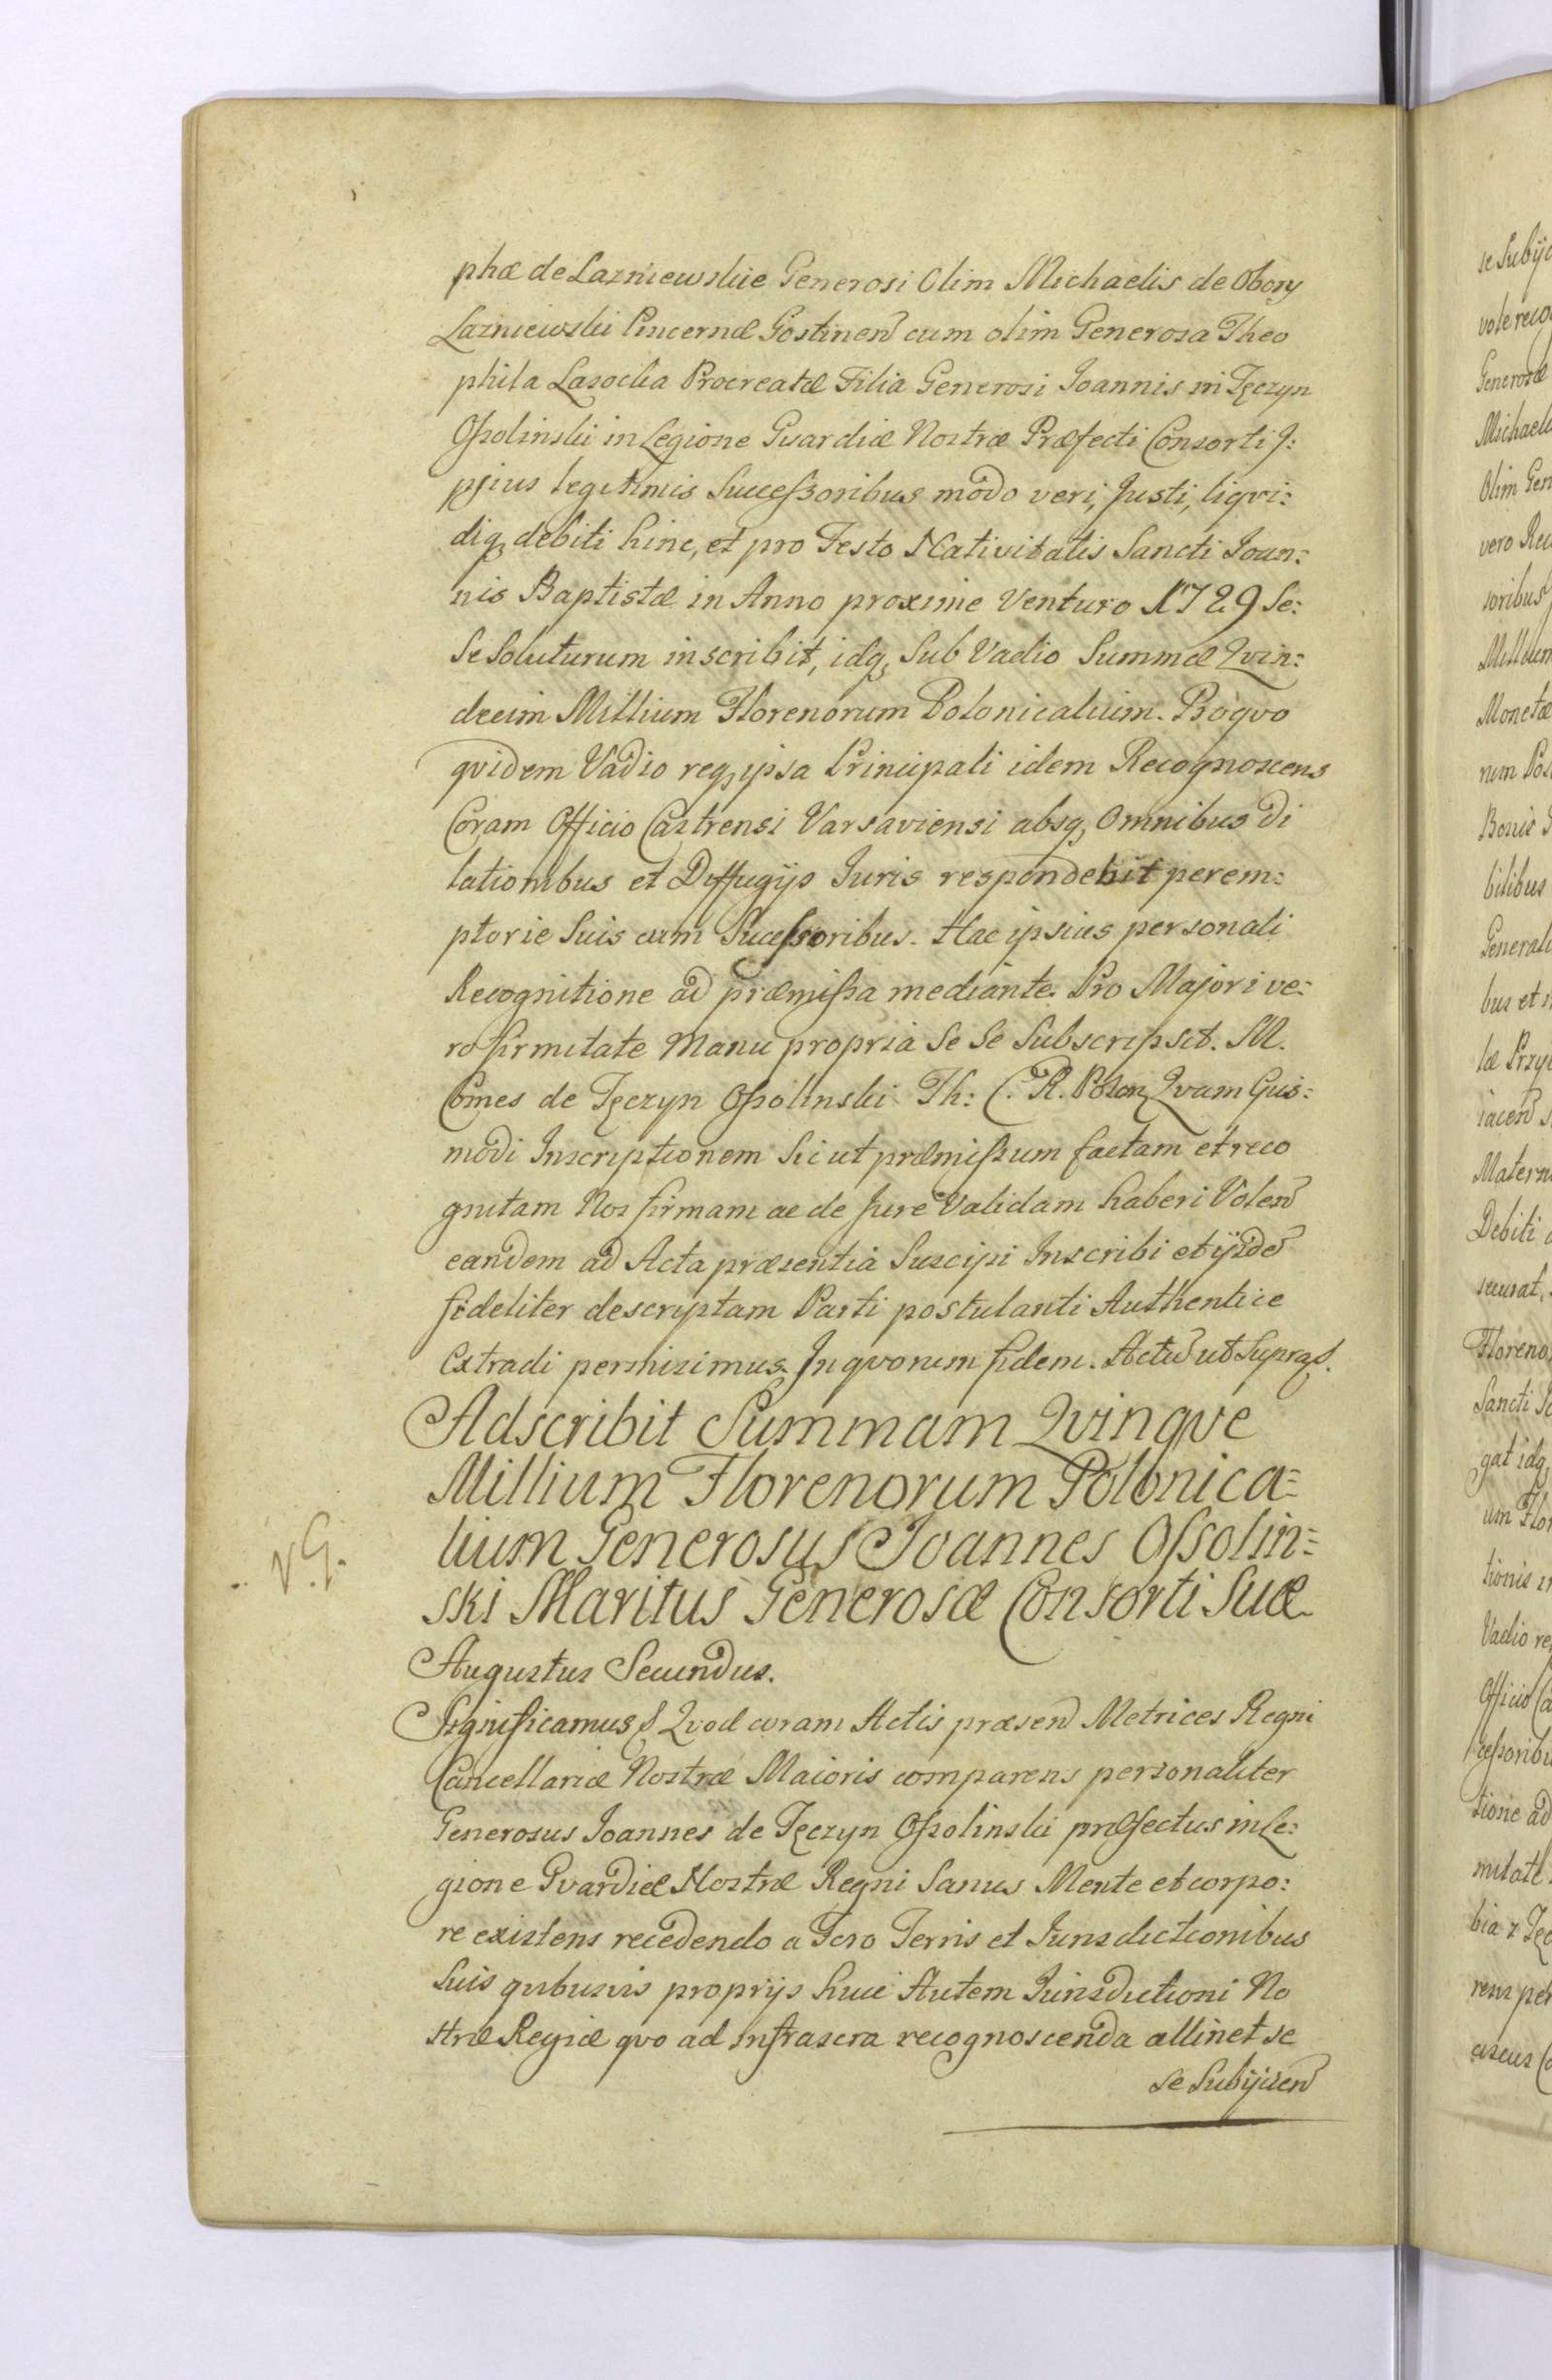 phæ de Lazniewskie Generosi Olim Michaelis de Obory
Lazniewski Pincernæ Gostinen cum olim Generosa Theo
phila Lasocka Procreatæ Filia Generosi Joannis in Tęczyn
Ossolinski in Legione Gvardiæ Nostræ Præfecti Consorti J:
psius legitimis Successoribus modo veri, Justi, liqvi:
diq, debiti hinc, et pro Festo Nativitatis Sancti Joan:
nis Baptistæ in Anno proxime Venturo 1729 Se:
Se Soluturum inscribit, idq, Sub Vadio Summæ Qvin:
decim Millium Florenorum Polonicalium. Pro qvo
qvidem Vadio req, ipsa Principali idem Recognoscens
Coram Officio Castrensi Varsaviensi absq, Omnibus Di
lationibus et Diffugijs Juris respondebit perem:
ptorie Suis cum Sucessoribus. Hac ipsius personali
Recognitione ad præmissa mediante. Pro Majori ve:
ro firmitate Manu propria Se Se Subscripsit. M.
Comes de Tęczyn Ossolinski Th: C. R. Polon Qvam Guis:
modi Inscriptionem Sic ut præmissum factam et reco
gnitam Nos firmam ac de Jure Validam haberi Volen
eandem ad Acta præsentia Suscipi Inscribi et ijsde
fideliter descriptam Parti postulanti Authentice
Extradi permisimus. In qvorum fidem. Actu ut Supra
Adscribit Summam Qvinqve
Millium Florenorum Polonica=
lium Generosus Joannes Ossolin=
ski Maritus Generosæ Consorti Suæ
v.G.
Augustus Secundus.
Significamus Qvod coram Actis præsen Metrices Regni
Cancellariæ Nostræ Maioris comparens personaliter
Generosus Joannes de Tęczyn Ossolinski præfectus in Le:
gione Gvardiæ Nostræ Regni Sanus Mente et corpo:
re existens recedendo a Foro Terris et Jurisdictionibus
Suis qvibusvis proprijs huic Autem Jurisdictioni No
stræ Regiæ qvo ad infrascra recognoscenda attinet se
se Subijcien